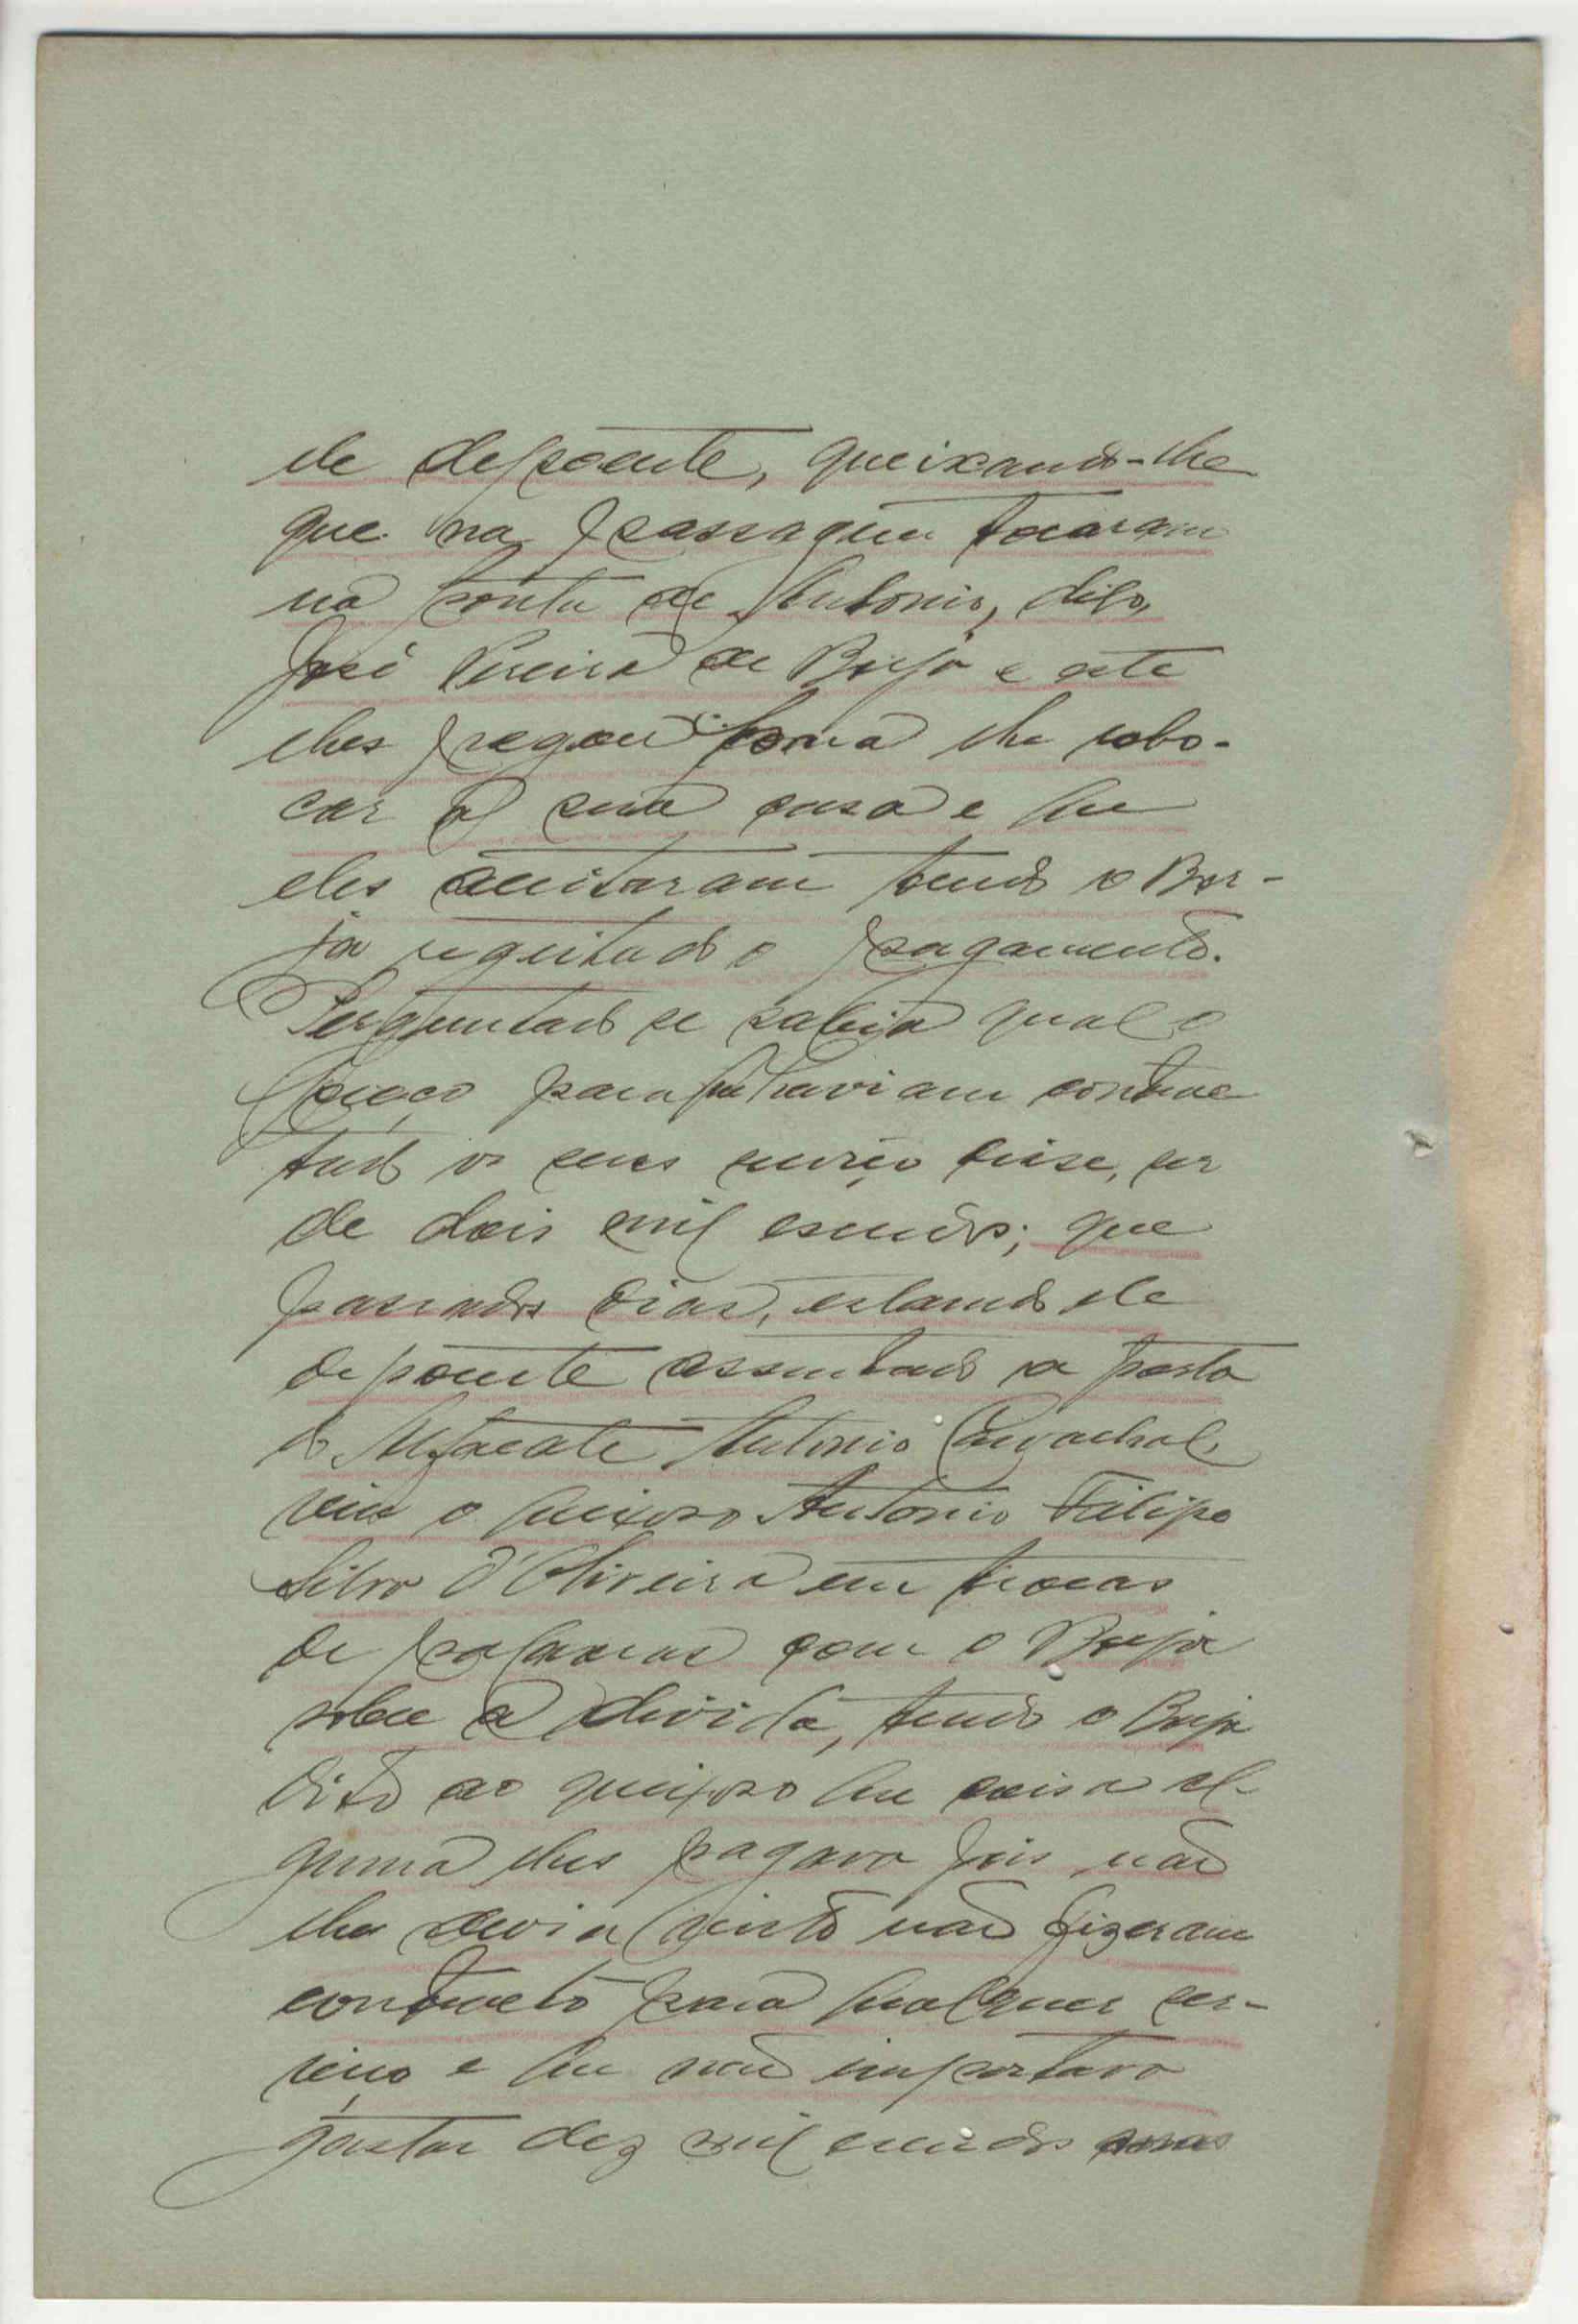 ele depoente, queixando-lhe
que na passagem tocaram
na porta de Antonio, digo,
José Pereira de Borja e este
lhes pregou para lhe rebo-
car a sua casa e que
eles aceitaram tendo o Bor-
ja regeitado o pagamento.
Perguntado se sabia qual o
preço para que haviam contrac
tado os seus serviço disse, ser
de dois mil escudos; que
passados dias, estando ele
depoente assentado a porta
do Antonio Carvachal,
veio o queixoso Antonio Filipe
Silva d'Oliveira em trocas
de palavras com o Borja
sobre a divida, tendo o Borja
dito ao queixoso que coisa al-
guma lhes pagava pois não
lhes devia visto não fizeram
contracto para qualquer ser-
viço e que não importava
gastar dez mil escudos mas